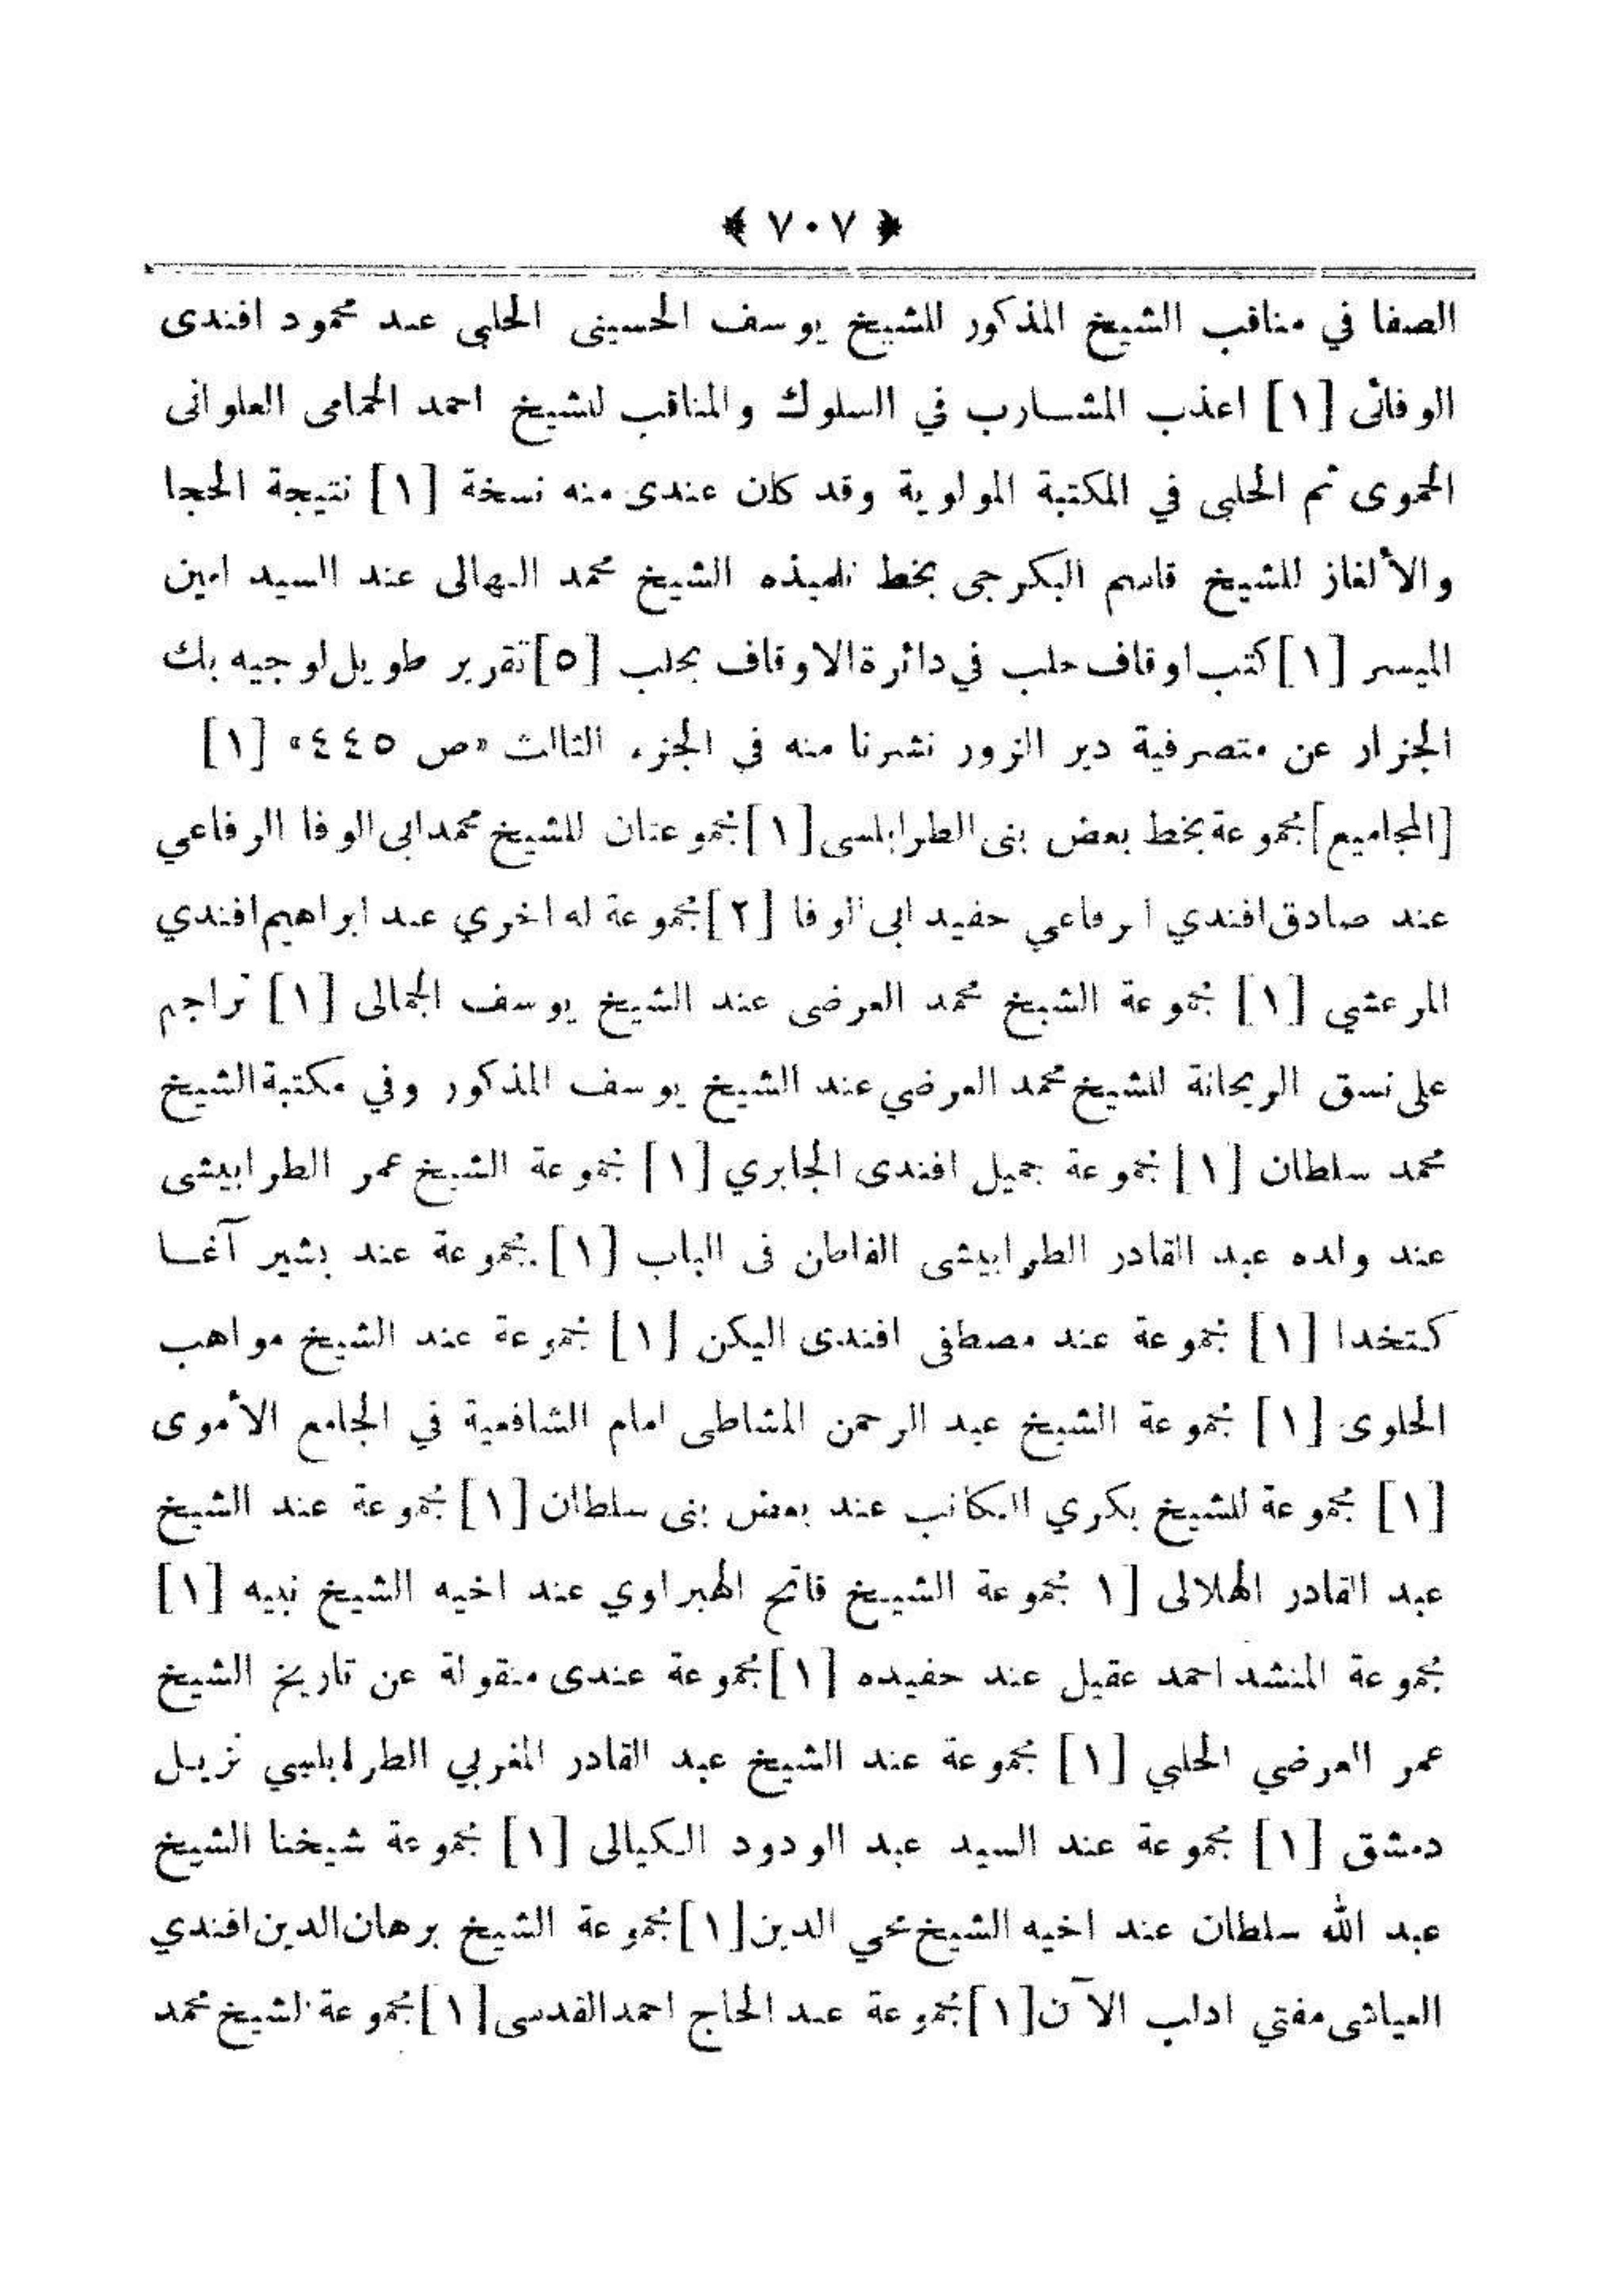 ﴿ ٧٠٧ ﴾
الصفا في مناقب الشيخ المذكور للشيخ يوسف الحسينى الحلبي عند محمود افندى
الوفائى [١] اعذب المشارب في السلوك والمناقب للشيخ احمد الحمامى العلوانى
الحموى ثم الحلبي في المكتبة المولوية وقد كان عندى منه نسخة [١] نتيجة الحجا
والألغاز للشيخ قاسم البكرجى بخط تلميذه الشيخ محمد البهالى عند السيد امين
الميسر [١] كتب اوقاف حلب في دائرة الاوقاف بحلب [٥] تقرير طويل لوجيه بك
الجزار عن متصرفية دير الزور نشرنا منه في الجزء الثالث «ص ٤٤٥» [١]
[المجاميع] مجموعة بخط بعض بنى الطرابلسى [١] مجموعتان للشيخ محمد ابى الوفا الرفاعي
عند صادق افندي الرفاعي حفيد ابى الوفا [٢] مجموعة له اخري عند ابراهيم افندي
المرعشي [١] مجموعة الشيخ محمد العرضى عند الشيخ يوسف الجمالى [١] تراجم
على نسق الريحانة للشيخ محمد العرضي عند الشيخ يوسف المذكور وفي مكتبة الشيخ
محمد سلطان [١] مجموعة جميل افندى الجابري [١] مجموعة الشيخ عمر الطرابيشى
عند ولده عبد القادر الطرابيشى القاطن فى الباب [١] مجموعة عند بشير آغا
كتخدا [١] مجموعة عند مصطفى افندى اليكن [١] مجموعة عند الشيخ مواهب
الحلوى [١] مجموعة الشيخ عبد الرحمن المشاطى امام الشافعية في الجامع الأموى
[١] مجموعة للشيخ بكري الكاتب عند بعض بنى سلطان [١] مجموعة عند الشيخ
عبد القادر الهلالى [١ مجموعة الشيخ فاتح الهبراوي عند اخيه الشيخ نبيه [١]
مجموعة المنشد احمد عقيل عند حفيده [١] مجموعة عندى منقولة عن تاريخ الشيخ
عمر العرضي الحلبي [١] مجموعة عند الشيخ عبد القادر المغربي الطرابلسي نزيل
دمشق [١] مجموعة عند السيد عبد الودود الكيالى [١] مجموعة شيخنا الشيخ
عبد الله سلطان عند اخيه الشيخ محي الدين [١] مجموعة الشيخ برهان الدين افندي
العياشى مفتي ادلب الآن [١] مجموعة عند الحاج احمد القدسى [١] مجموعة لشيخ محمد